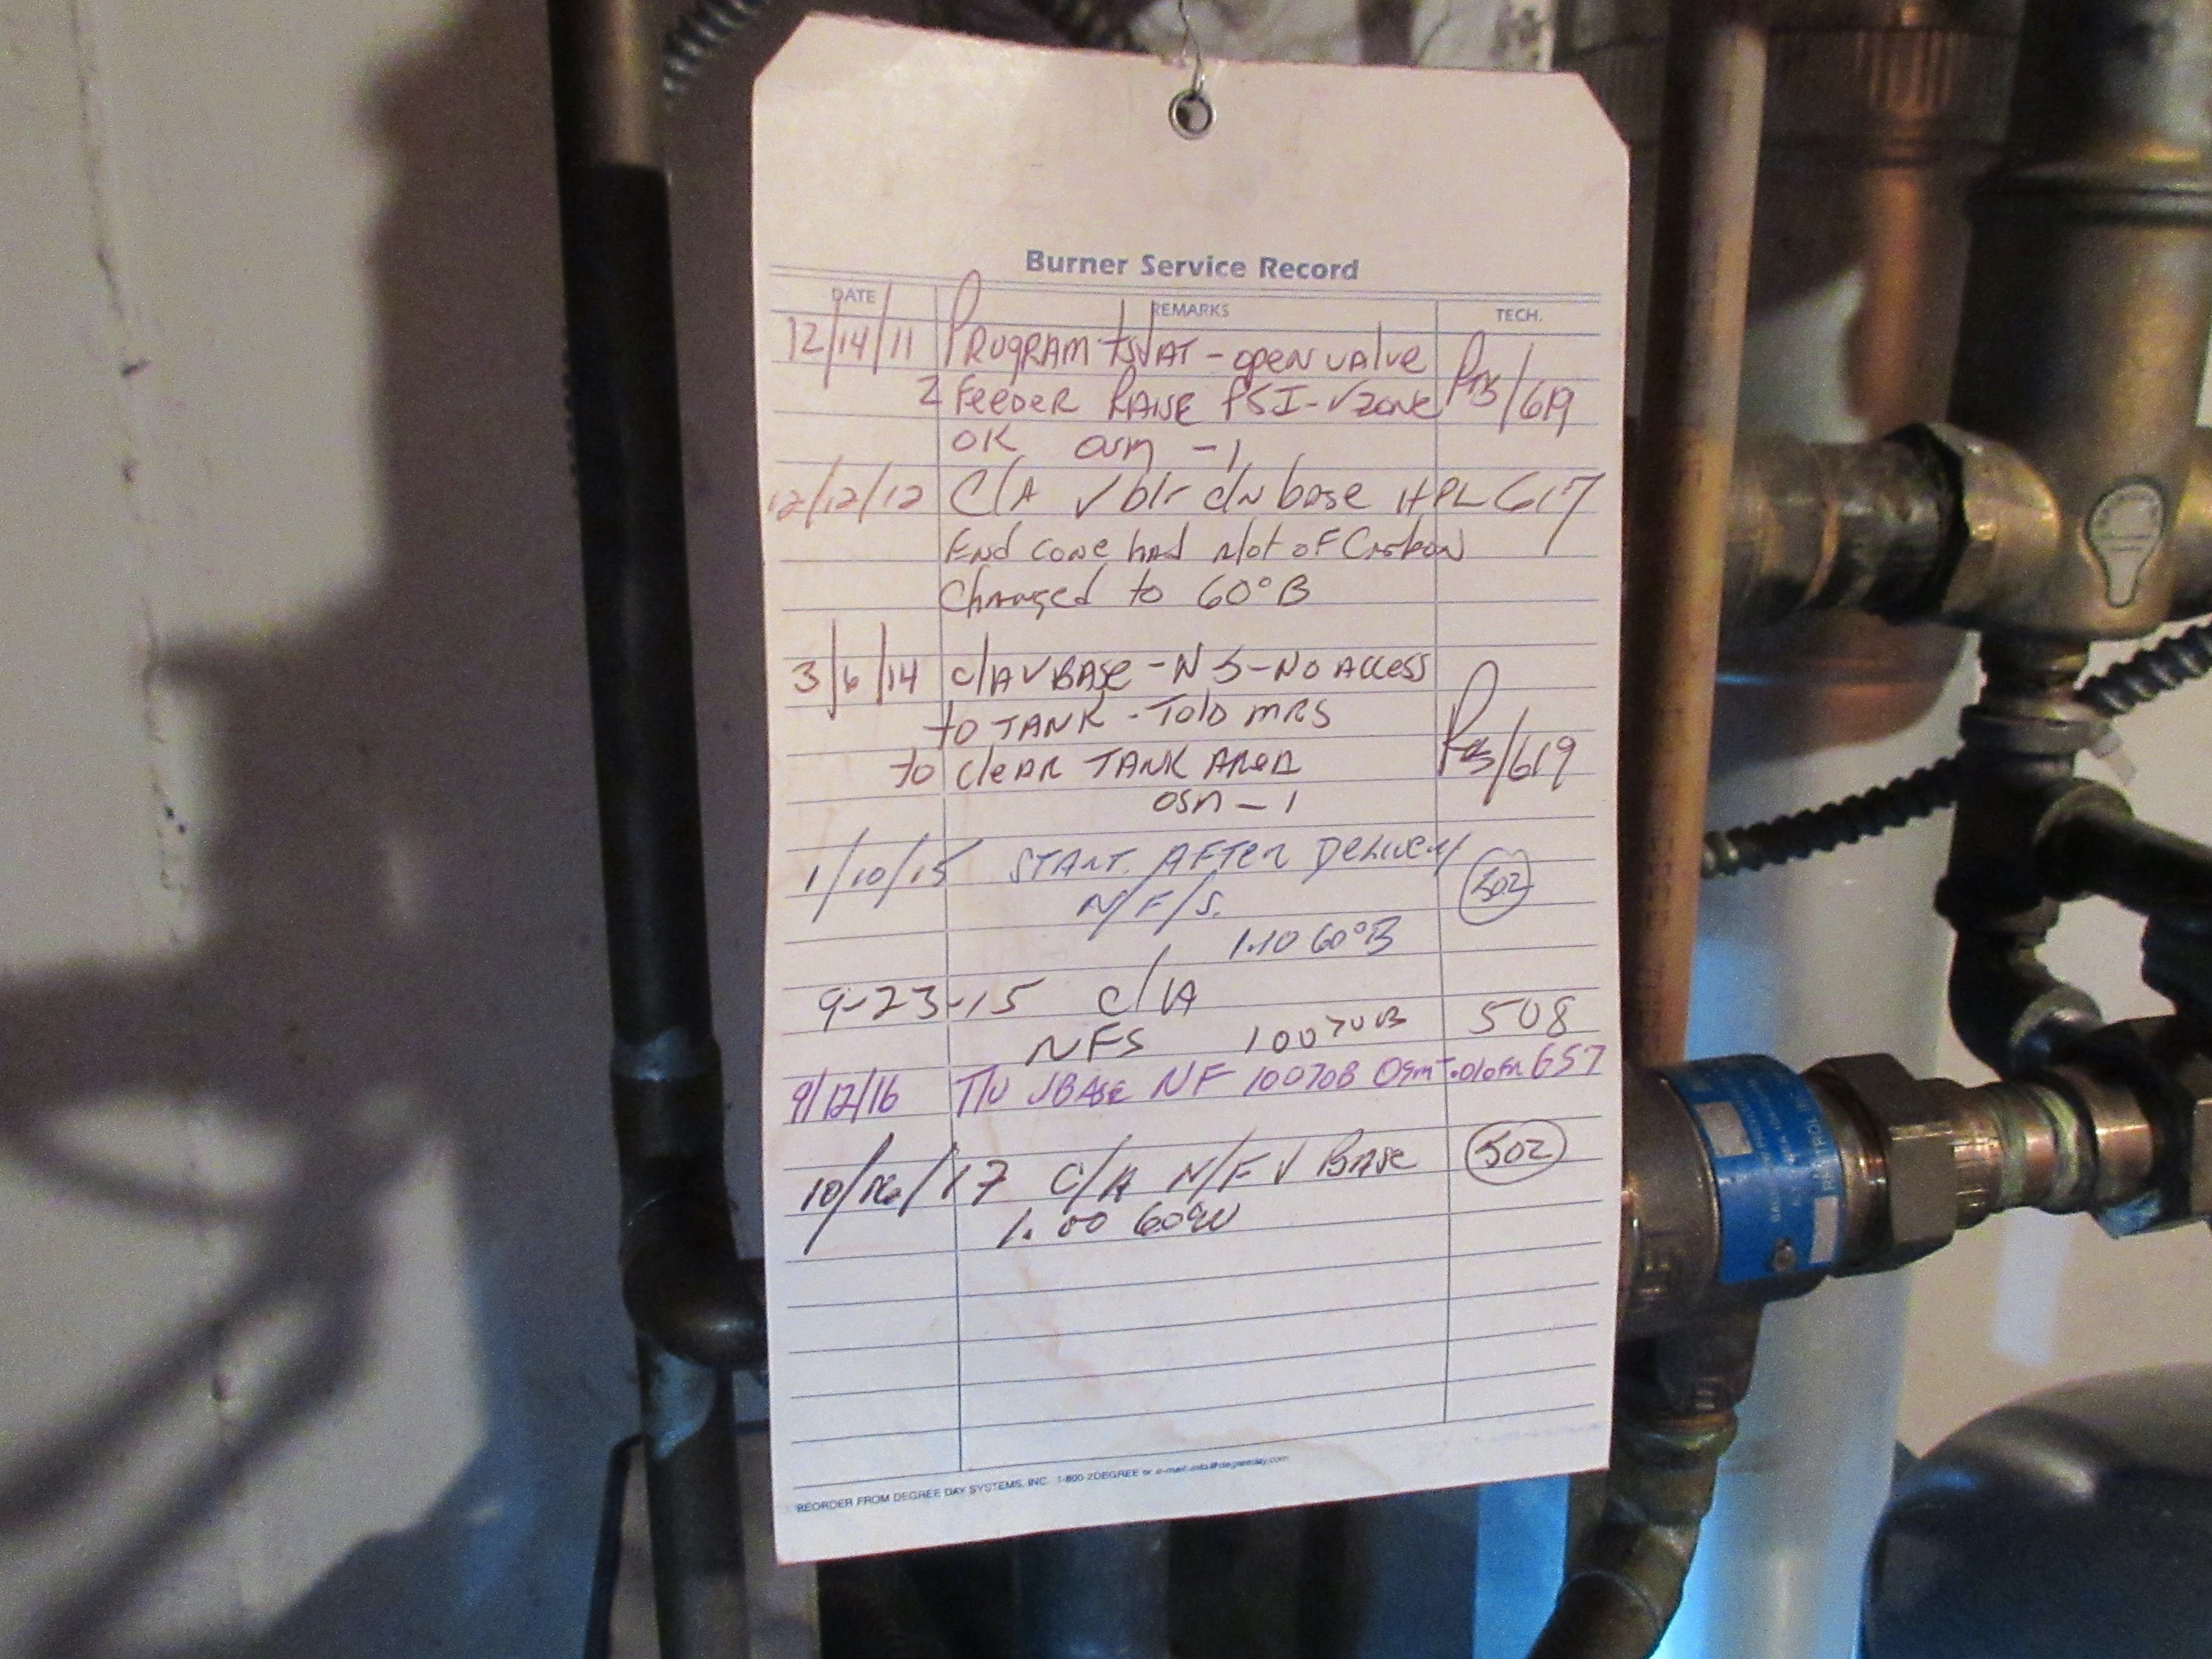 Burner Service Record
DATE REMARKS TECH.
12/14/11 PROGRAM tstAT - open valve
2 Feeder RAISE PSI - √ zone /619
OK osm -1
12/12/12 C/A √ blr c/n base HPL 617
End cone had alot of Carbon
Changed to 60°B
3/6/14 C/A √ BASe - NS - NO ACCess
to TANK - Told MRS
to cleAR TANK AReA /619
osm - 1
1/10/15 START. AFTer Delivery 502
N/F/S.
1.10 60°B
9-23-15 C/A
NFS 100 70B 508
9/12/16 T/U √ BAse NF 100 70B Osm 657
10/16/17 C/A N/F √ BASe 502
1.00 60°W
REORDER FROM DEGREE DAY SYSTEMS, INC. 1-800 2DEGREE or e-mail: info@degreeday.com